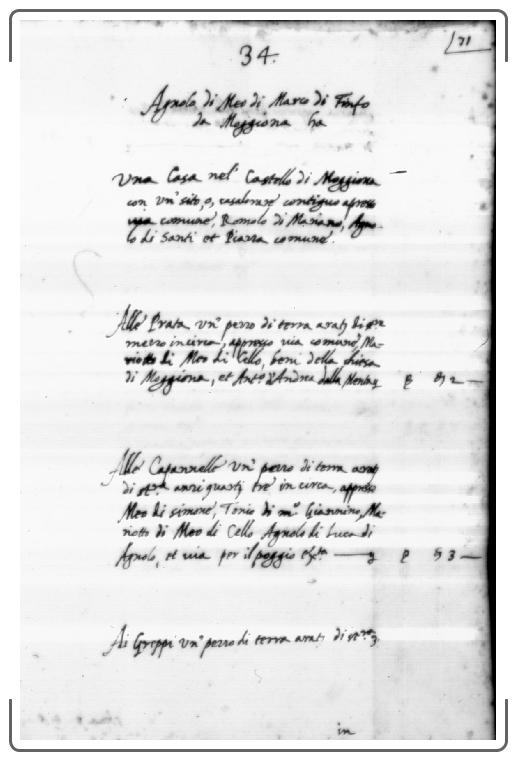 71
34.
Agnolo di Meo di Marco di Finfo
da Moggiona ha
Una Casa nel Castello di Moggiona
con un' sito, o, casalorare contiguo apresso
via comune, Romolo di Mariano, Agno-
lo di Santi et Piazza comune.
Alle Prata un' pezzo di terra
mezzo incirca, appresso via comune, Ma-
riotto di Meo di Cello, beni della chiesa
di Moggiona, et Ant.o d'Andrea dalla 2
Alle Capannelle un' pezzo di terra
di tre in circa, appresso
Meo di simone, Tonio di m.o Giannino, Ma-
riotto di Meo di Cello Agnolo di Luca di
Agnolo, et via per il poggio 3
Ai Greppi un' pezzo di terra di
in